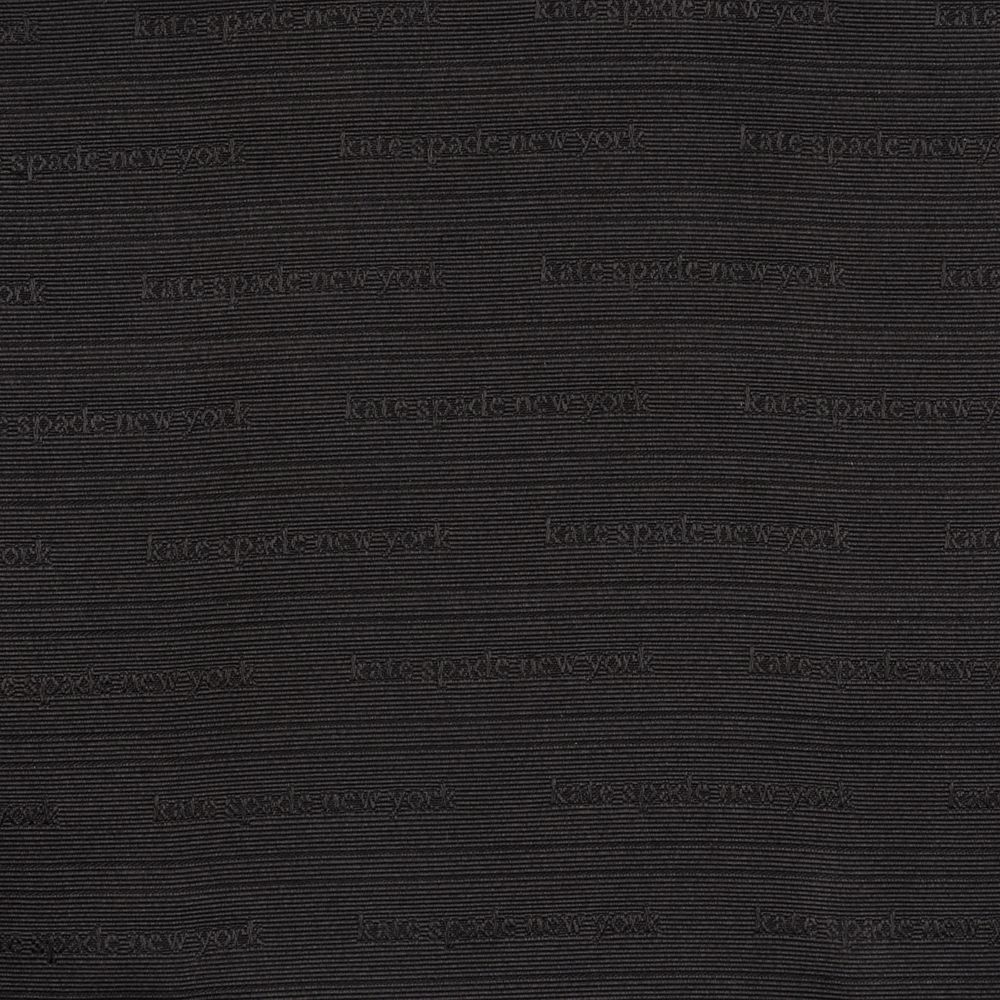 rk kate spade new york kate spade new york kate
spade new york kate spade new york kate spade new y
ork kate spade new york kate spade new york kate
e spade new york kate spade new york kate spade new y
ork kate spade new york kate spade new york kate
e spade new york kate spade new york kate spade new y
york kate spade new york kate spade new york kate
e spade new york kate spade new york kate spade new y